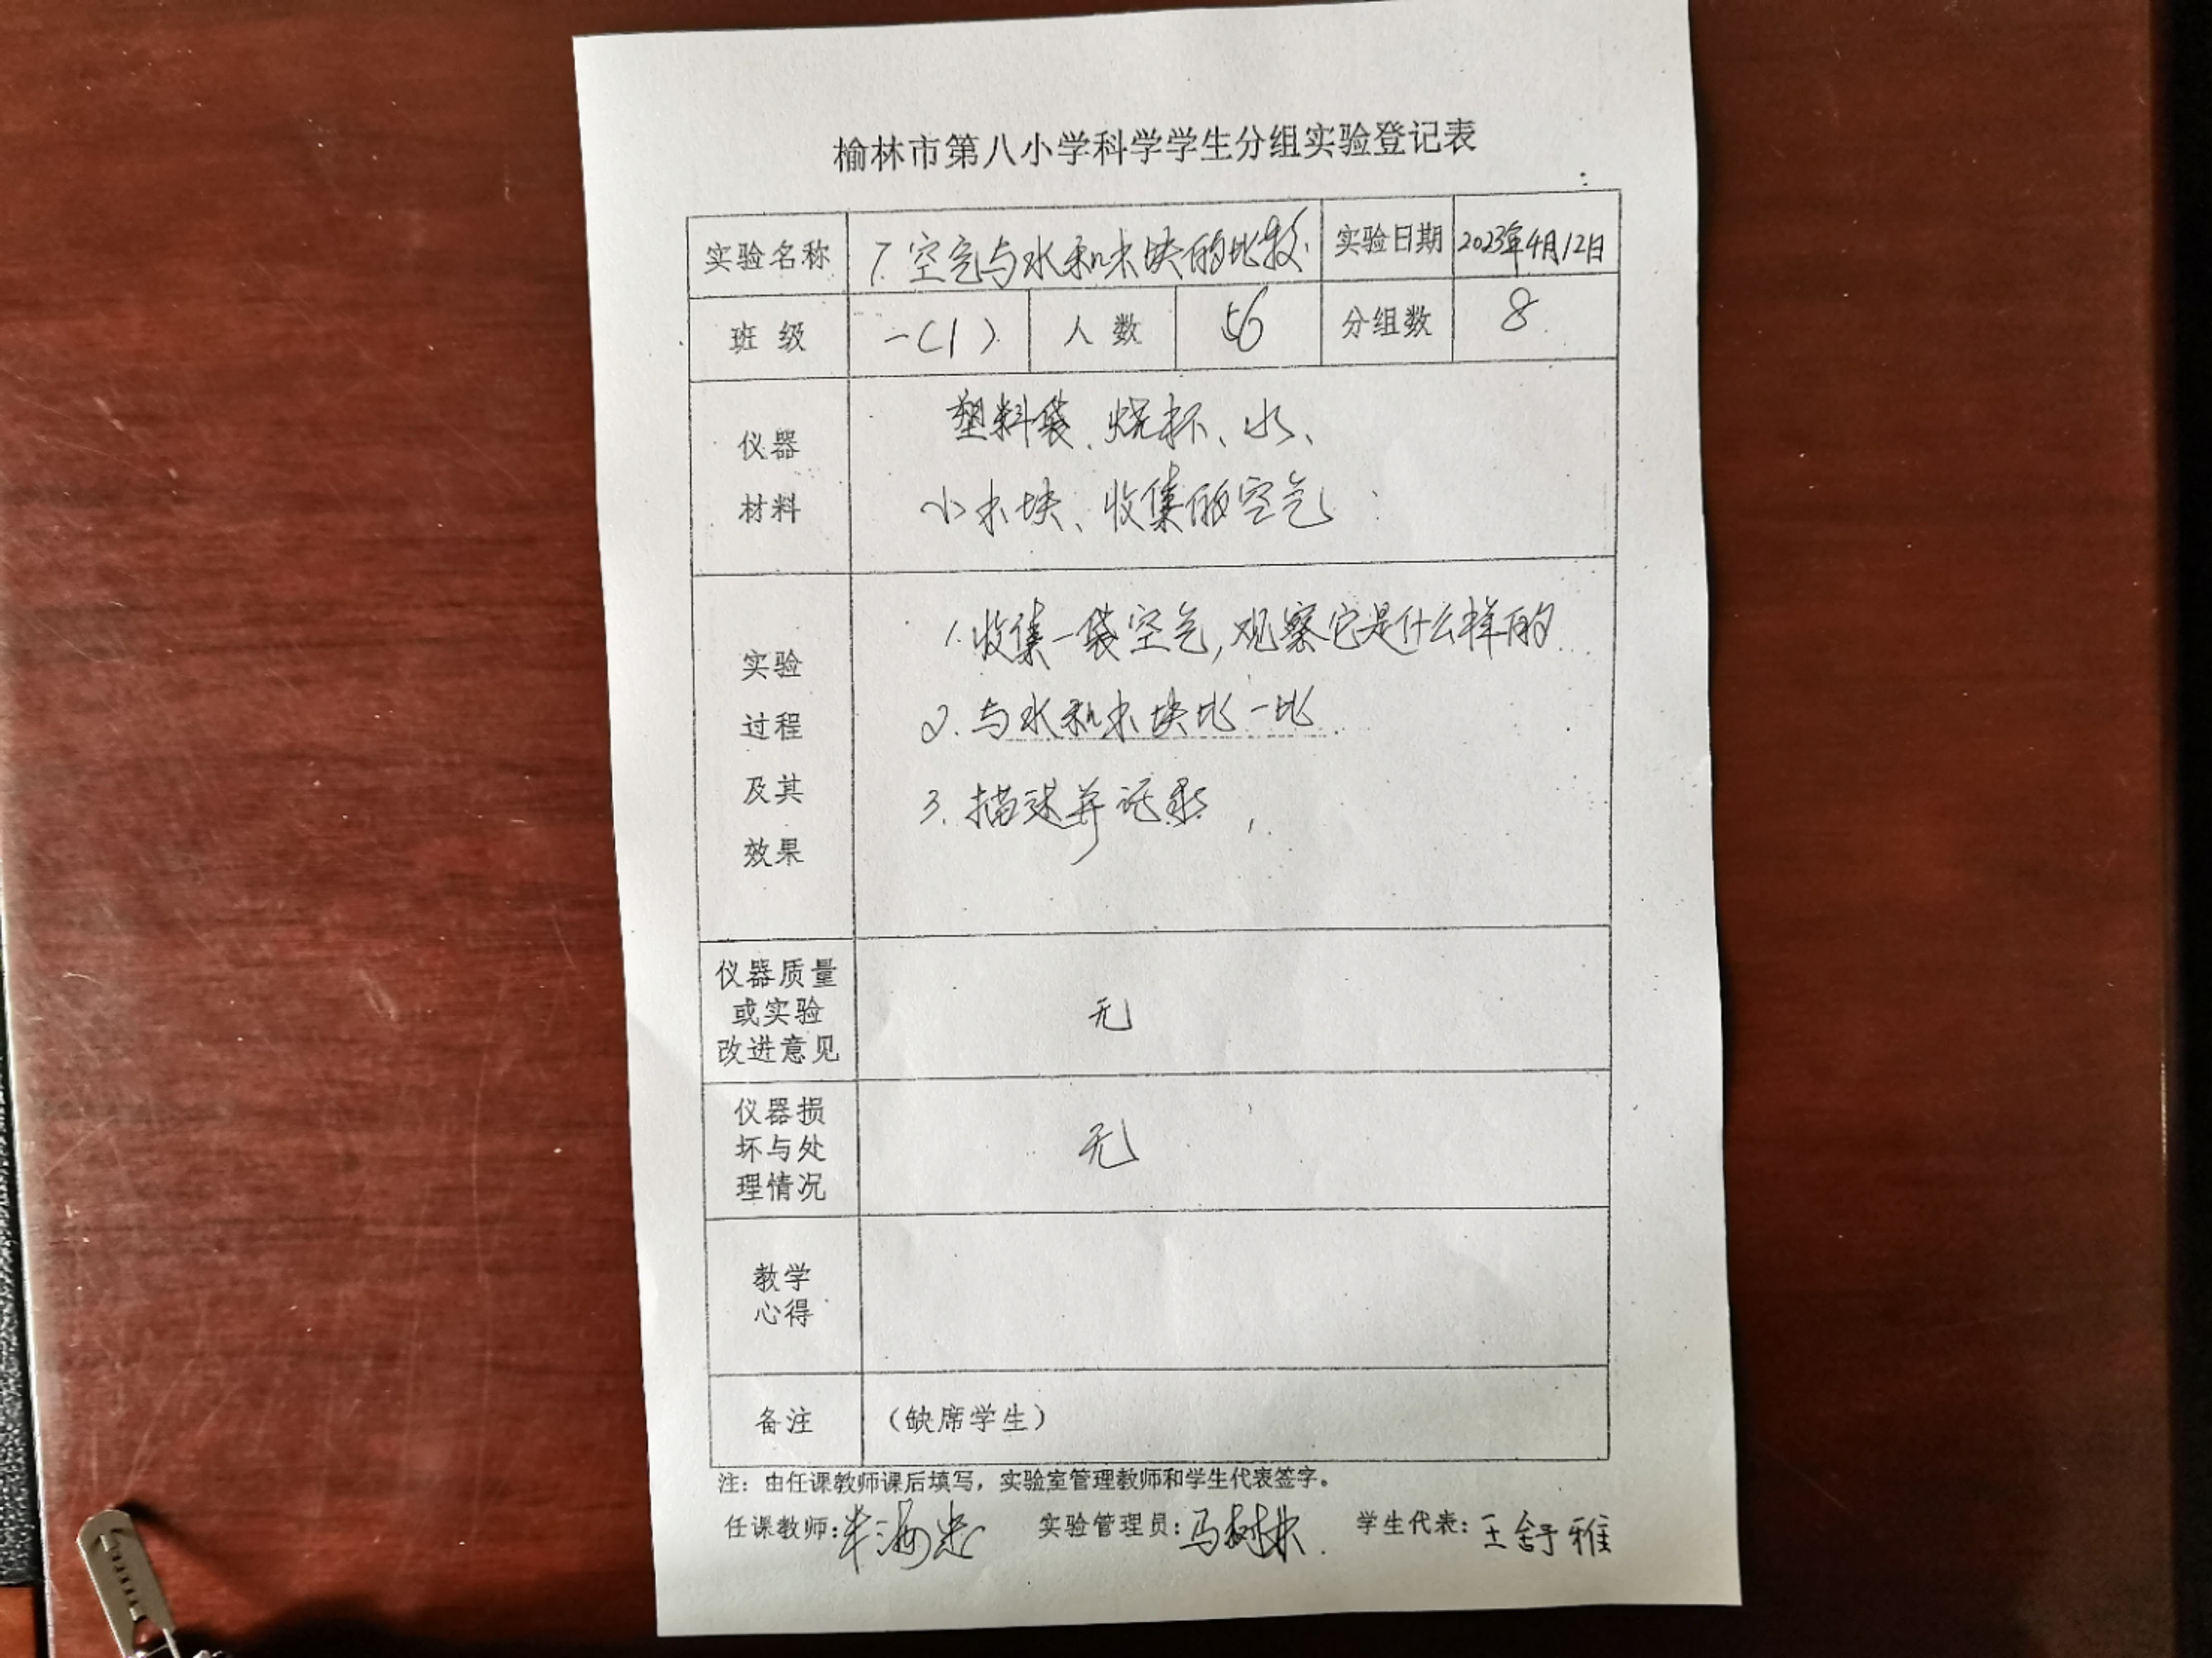 榆林市第八小学科学学生分组实验登记表
实验名称 7.空气与水和木块的比较 实验日期 2023年4月12日
班级 一(1) 人数 56 分组数 8
仪器
材料
塑料袋、烧杯、水、
小木块、收集的空气
实验
过程
及其
效果
1.收集一袋空气,观察它是什么样的
2.与水和木块比一比
3.描述并记录
仪器质量
或实验
改进意见
无
仪器损
坏与处
理情况
无
教学
心得
备注 (缺席学生)
注:由任课教师课后填写,实验室管理教师和学生代表签字。
任课教师: 实验管理员:马树林 学生代表:王舒雅